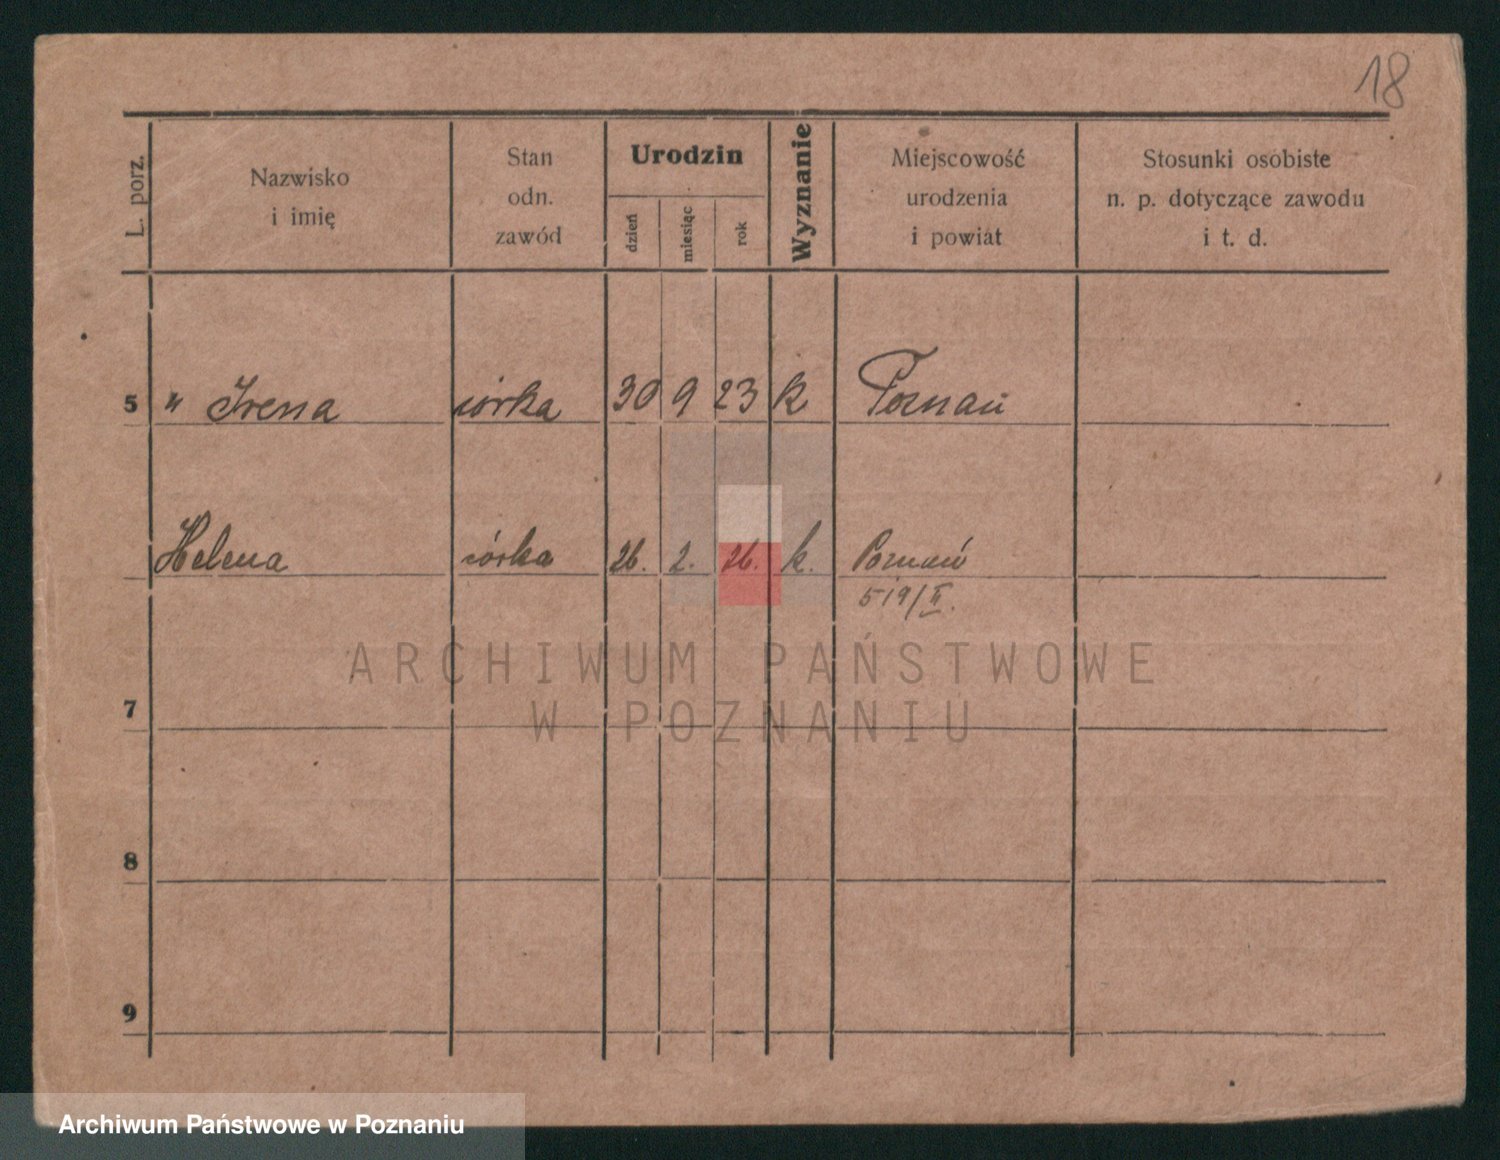 18
L. porz.
Nazwisko
i imię
Stan
odn.
zawód
Urodzin
dzień
miesiąc
rok
Wyznanie
Miejscowość
urodzenia
i powiat
Stosunki osobiste
n. p. dotyczące zawodu
i t. d.
5 " Irena córka 30 9 23 k Poznań
Helena córka 26. 2. 26. k. Poznań
519/II.
ARCHIWUM PAŃSTWOWE
W POZNANIU
7
8
9
Archiwum Państwowe w Poznaniu